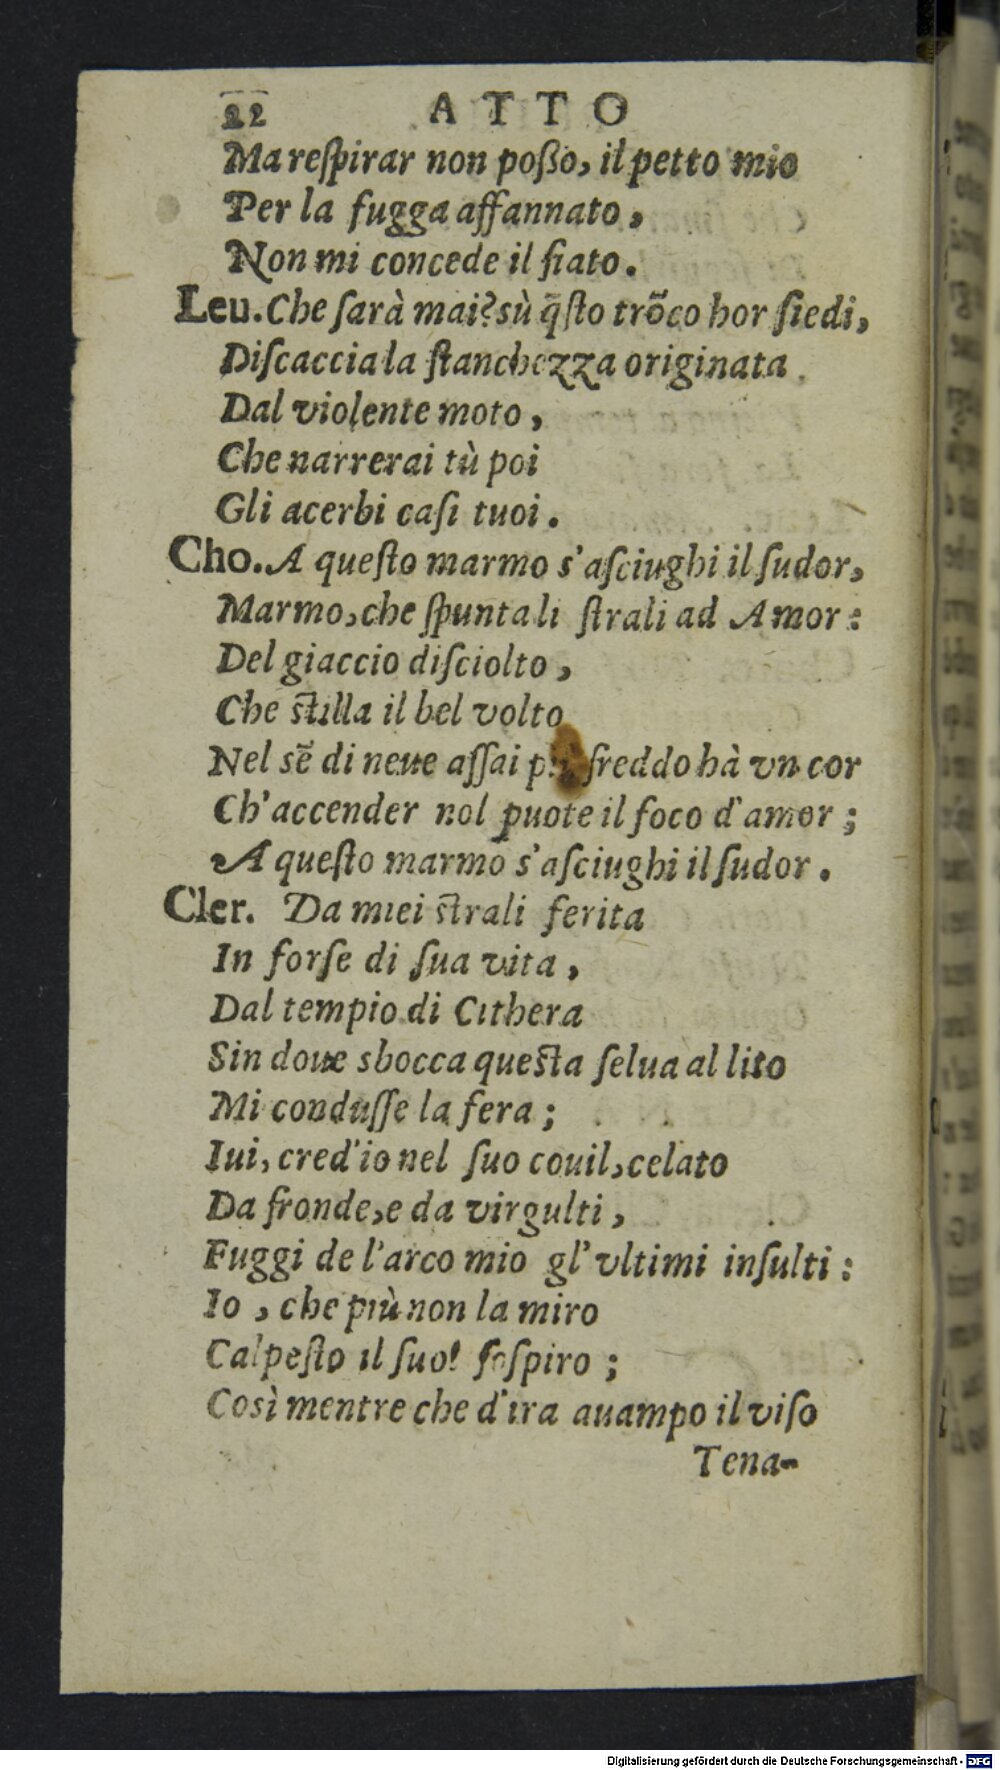 22 ATTO
Ma reſpirar non poßo, il petto mio
Per la fugga affannato,
Non mi concede il fiato.
Leu. Che ſarà mai? sù q̃ſto trõco hor ſiedi,
Diſcaccia la ſtanchezza originata.
Dal violente moto,
Che narrerai tù poi
Gli acerbi caſi tuoi.
Cho. A queſto marmo s'aſciughi il ſudor,
Marmo, che ſpunta li ſtrali ad Amor:
Del giaccio diſciolto,
Che ſtilla il bel volto
Nel sẽ di neue aſſai più freddo hà vn cor
Ch'accender nol puote il foco d'amor;
A queſto marmo s'aſciughi il ſudor.
Cler. Da miei ſtrali ferita
In forſe di ſua vita,
Dal tempio di Cithera
Sin doue sbocca queſta ſelua al lito
Mi conduſſe la fera;
Iui, cred'io nel ſuo couil, celato
Da fronde, e da virgulti,
Fuggi de l'arco mio gl'vltimi inſulti:
Io, che più non la miro
Calpeſto il ſuol ſoſpiro;
Così mentre che d'ira auampo il viſo
Tena-
Digitalisierung gefördert durch die Deutsche Forschungsgemeinschaft - DFG